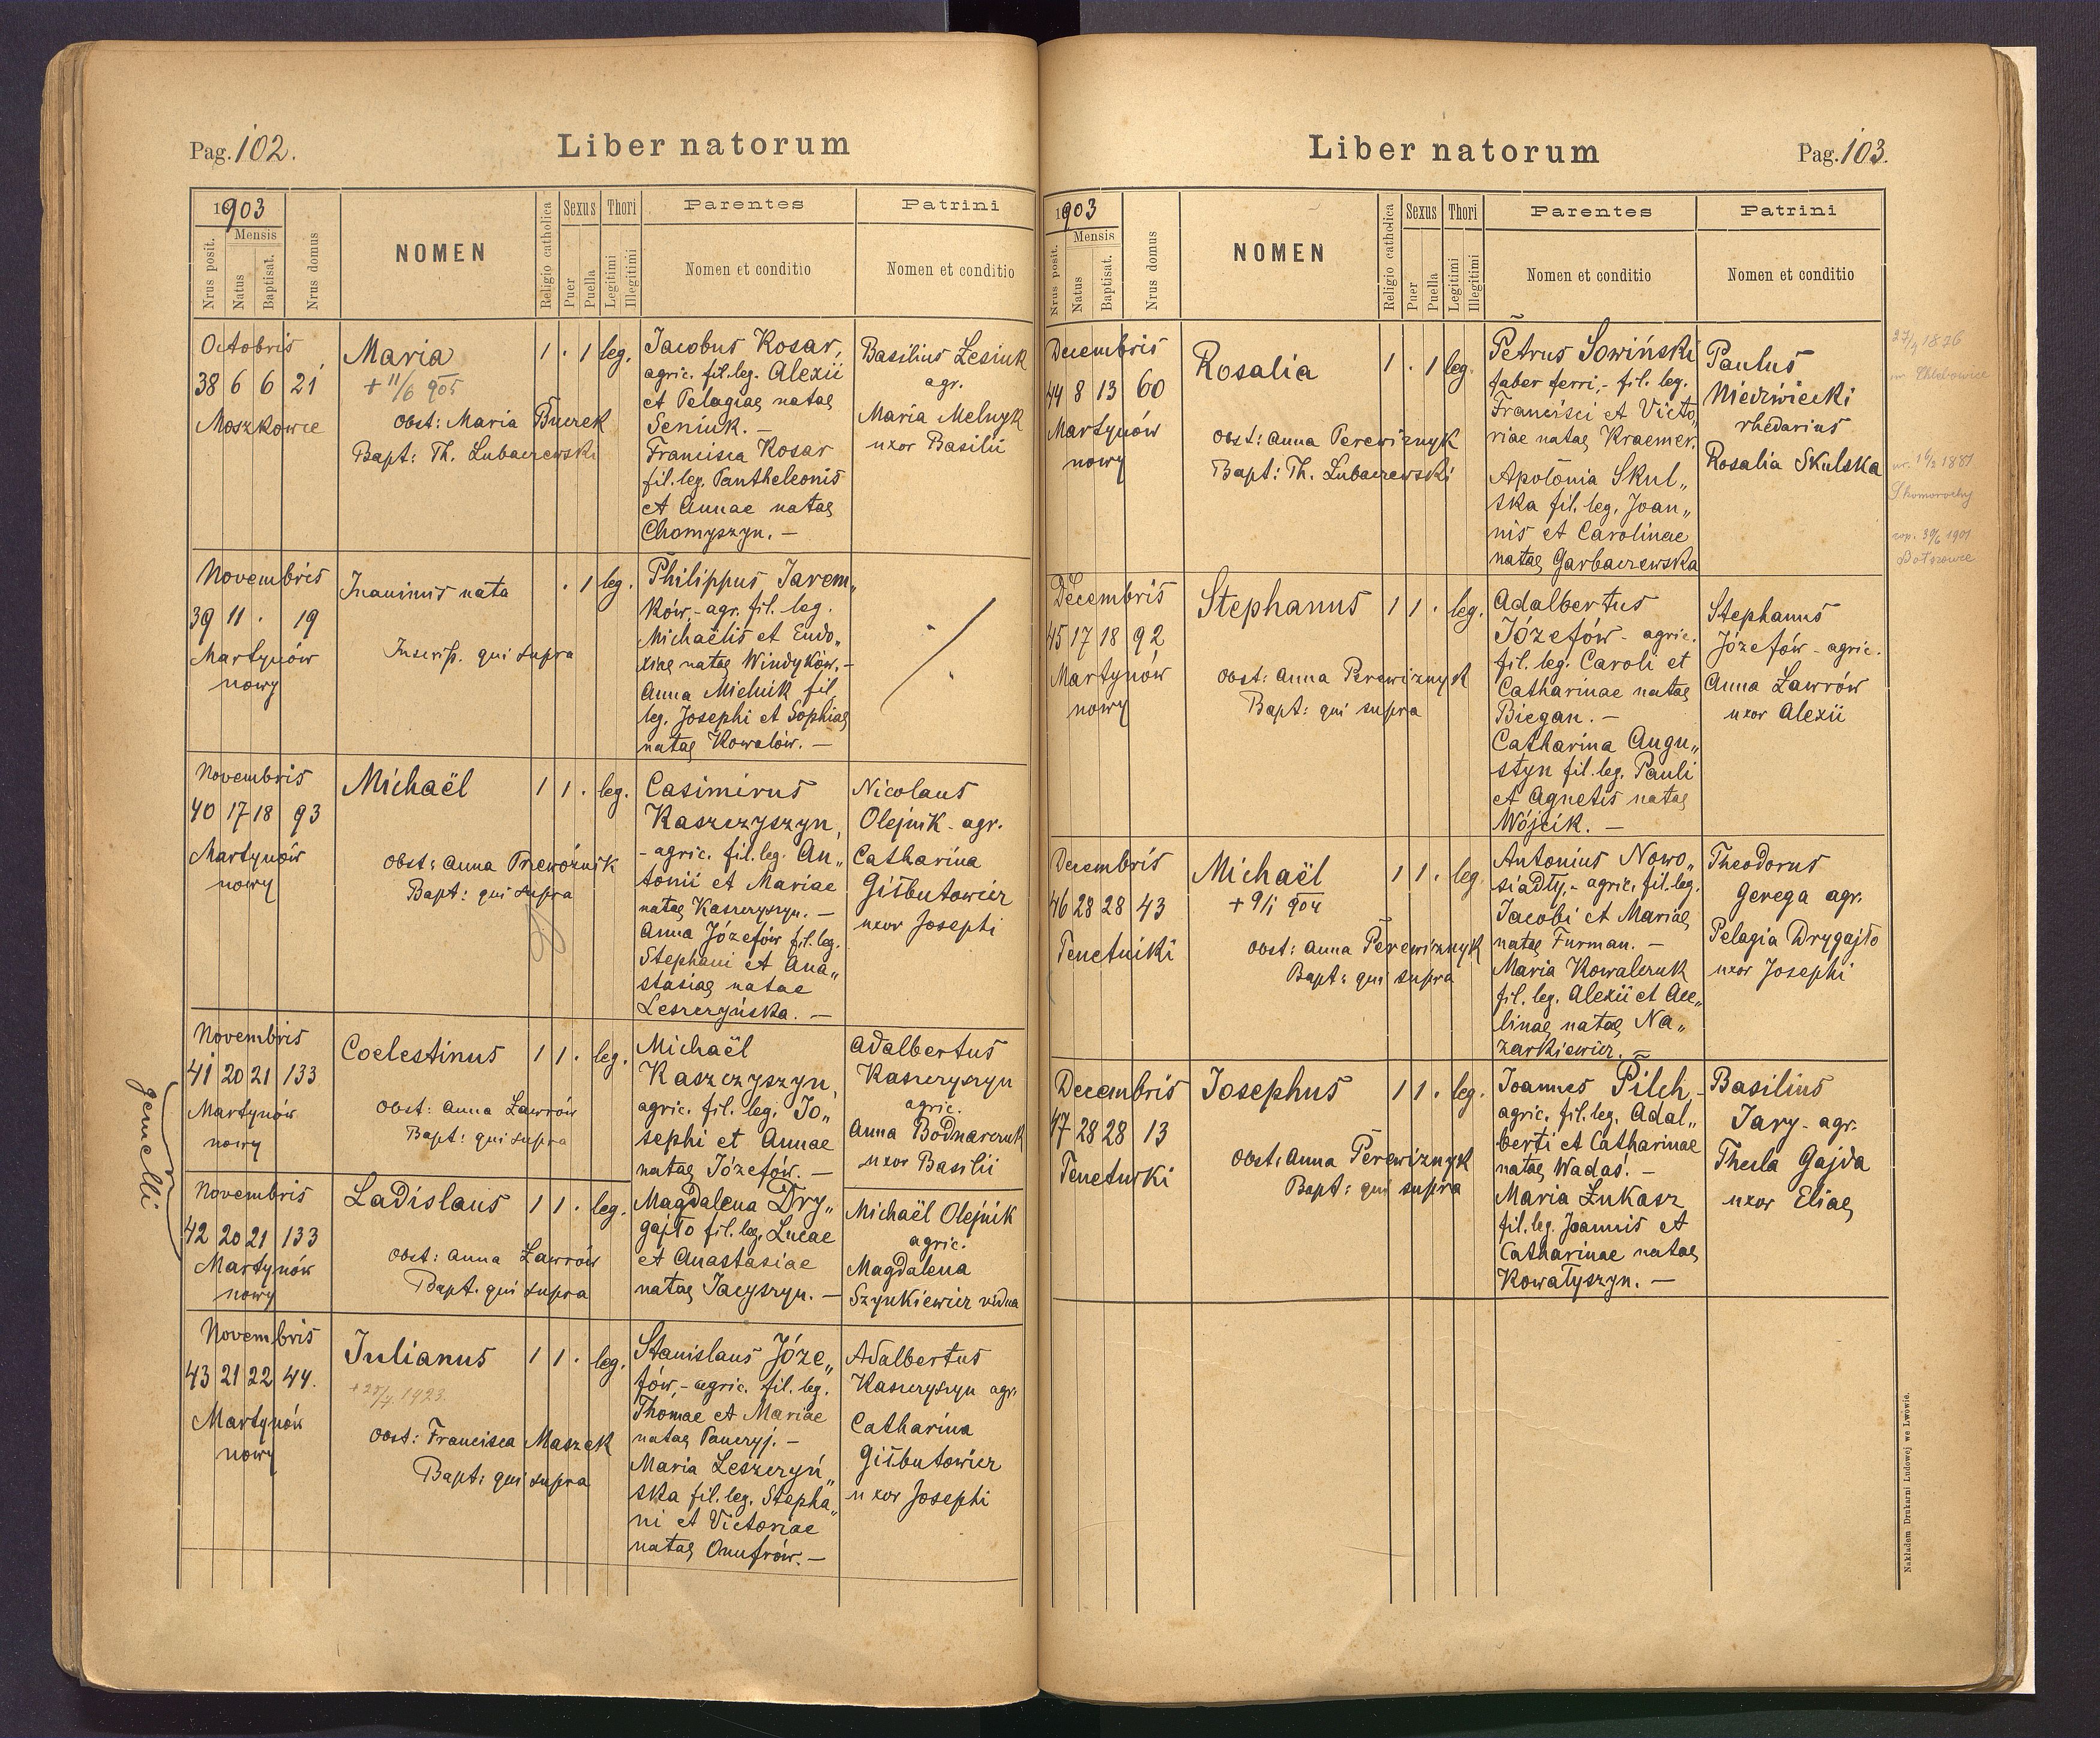 Pag. 102.
Liber natorum
1903
Mensis
Nrus posit.
Natus
Baptisat.
Nrus domus
NOMEN
Religio catholica
Sexus
Puer
Puella
Thori
Legitimi
Illegitimi
Parentes
Nomen et conditio
Patrini
Nomen et conditio
Octobris
38 6 6 21
Moszkowce
Maria
+ 11/6 905
Obst: Maria Burek
Bapt: Th. Lubaczewski
1 . 1 leg.
Jacobus Kosar,
agric. fil. leg. Alexii
et Pelagiae natae
Seniuk. —
Francisca Kosar
fil. leg. Pantheleonis
et Annae natae
Chomyszyn. —
Basilius Lesiuk
agr.
Maria Melnyk
uxor Basilii
Novembris
39 11 . 19
Martynów
nowy
Inanimis nata
Inscrip. qui supra
. 1 leg.
Philippus Jarem„
ków, - agr. fil. leg.
Michaëlis et Eudo„
xiae natae Windyków. -
Anna Mielnik fil.
leg. Josephi et Sophiae
natae Kowalów. —
Novembris
40 17 18 93
Martynów
nowy
Michaël
Obst: Anna Przewoźnik
Bapt: qui supra
1 1 . leg.
Casimirus
Kaszczyszyn,
- agric. fil. leg. An„
tonii et Mariae
natae Kaszczyszyn. —
Anna Józefów fil. leg.
Stephani et Ana„
stasiae natae
Leszczyńska. —
Nicolaus
Olejnik - agr.
Catharina
Giłbutowicz
uxor Josephi
gemelli
Novembris
41 20 21 133
Martynów
nowy
Coelestinus
Obst: Anna Ławrów
Bapt: qui supra
1 1 . leg.
Michaël
Kaszczyszyn,
agric. fil. leg. Jo„
sephi et Annae
natae Józefów. —
Adalbertus
Kaszczyszyn
agric.
Anna Bodnarczuk
uxor Basilii
Novembris
42 20 21 133
Martynów
nowy
Ladislaus
Obst: Anna Ławrów
Bapt. qui supra
1 1 . leg.
Magdalena Dry„
gajło fil. leg. Lucae
et Anastasiae
natae Jacyszyn. —
Michaël Olejnik
agric.
Magdalena
Szynkiewicz vidua
Novembris
43 21 22 44.
Martynów
nowy
Julianus
Obst: Francisca Maszek
Bapt: qui supra
1 1 . leg.
Stanislaus Józe„
fów, - agric. fil. leg.
Thomae et Mariae
natae Panczyj. —
Maria Leszczyń„
ska fil. leg. Stepha„
ni et Victoriae
natae Onufrów. —
Adalbertus
Kaszczyszyn agr.
Catharina
Giłbutowicz
uxor Josephi
Liber natorum
Pag. 103.
1903
Mensis
Nrus posit.
Natus
Baptisat.
Nrus domus
NOMEN
Religio catholica
Sexus
Puer
Puella
Thori
Legitimi
Illegitimi
Parentes
Nomen et conditio
Patrini
Nomen et conditio
Decembris
44 8 13 60
Martynów
nowy
Rosalia
Obst: Anna Perewiznyk
Bapt: Th. Lubaczewski
1 . 1 leg.
Petrus Sowiński
faber ferri, - fil. leg.
Francisci et Victo„
riae natae Kraemer.
Apolonia Skul„
ska fil. leg. Joan„
nis et Carolinae
natae Garbaczewska
Paulus
Niedźwiecki
rhedarius
Rosalia Skulska
Decembris
45 17 18 92
Martynów
nowy
Stephanus
Obst: Anna Perewiznyk
Bapt: qui supra
1 1 . leg.
Adalbertus
Józefów - agric.
fil. leg. Caroli et
Catharinae natae
Biegan. —
Catharina Augu„
styn fil. leg. Pauli
et Agnetis natae
Wójcik. —
Stephanus
Józefów - agric.
Anna Ławrów
uxor Alexii
Decembris
46 28 28 43
Tenetniki
Michaël
+ 9/1 904
Obst: Anna Perewiznyk
Bapt: qui supra
1 1 . leg.
Antonius Nowo„
siadły, - agric. fil. leg.
Jacobi et Mariae
natae Furman. —
Maria Kowalczuk
fil. leg. Alexii et Ace„
linae natae Na„
zarkiewicz. —
Theodorus
Gerega agr.
Pelagia Drygajło
uxor Josephi
Decembris
47 28 28 13
Tenetniki
Josephus
Obst: Anna Perewiznyk
Bapt: qui supra
1 1 . leg.
Joannes Pilch, -
agric. fil. leg. Adal„
berti et Catharinae
natae Wadas. —
Maria Łukasz
fil. leg. Joannis et
Catharinae natae
Kowałyszyn. —
Basilius
Jary - agr.
Thecla Gajda
uxor Eliae
Nakładem Drukarni Ludowej we Lwowie.